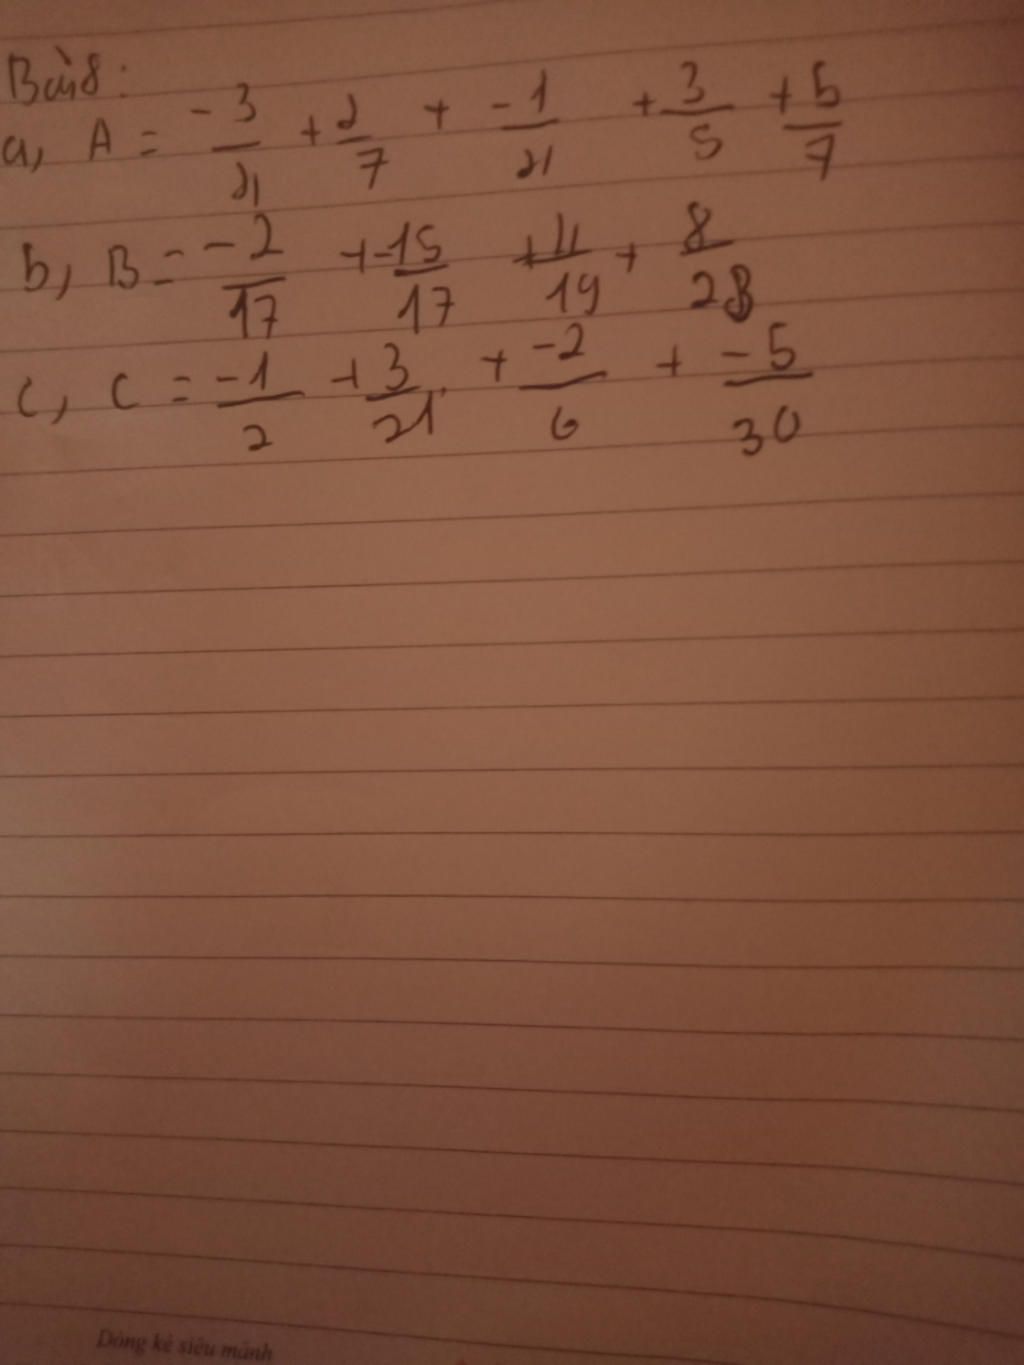 Bài 8:
a, A = -3/21 + 2/7 + -1/21 + 3/5 + 5/7
b, B = -2/17 + -15/17 + 4/19 + 8/23
c, C = -1/2 + 3/21 + -2/6 + -5/30
Dòng kẻ siêu mảnh